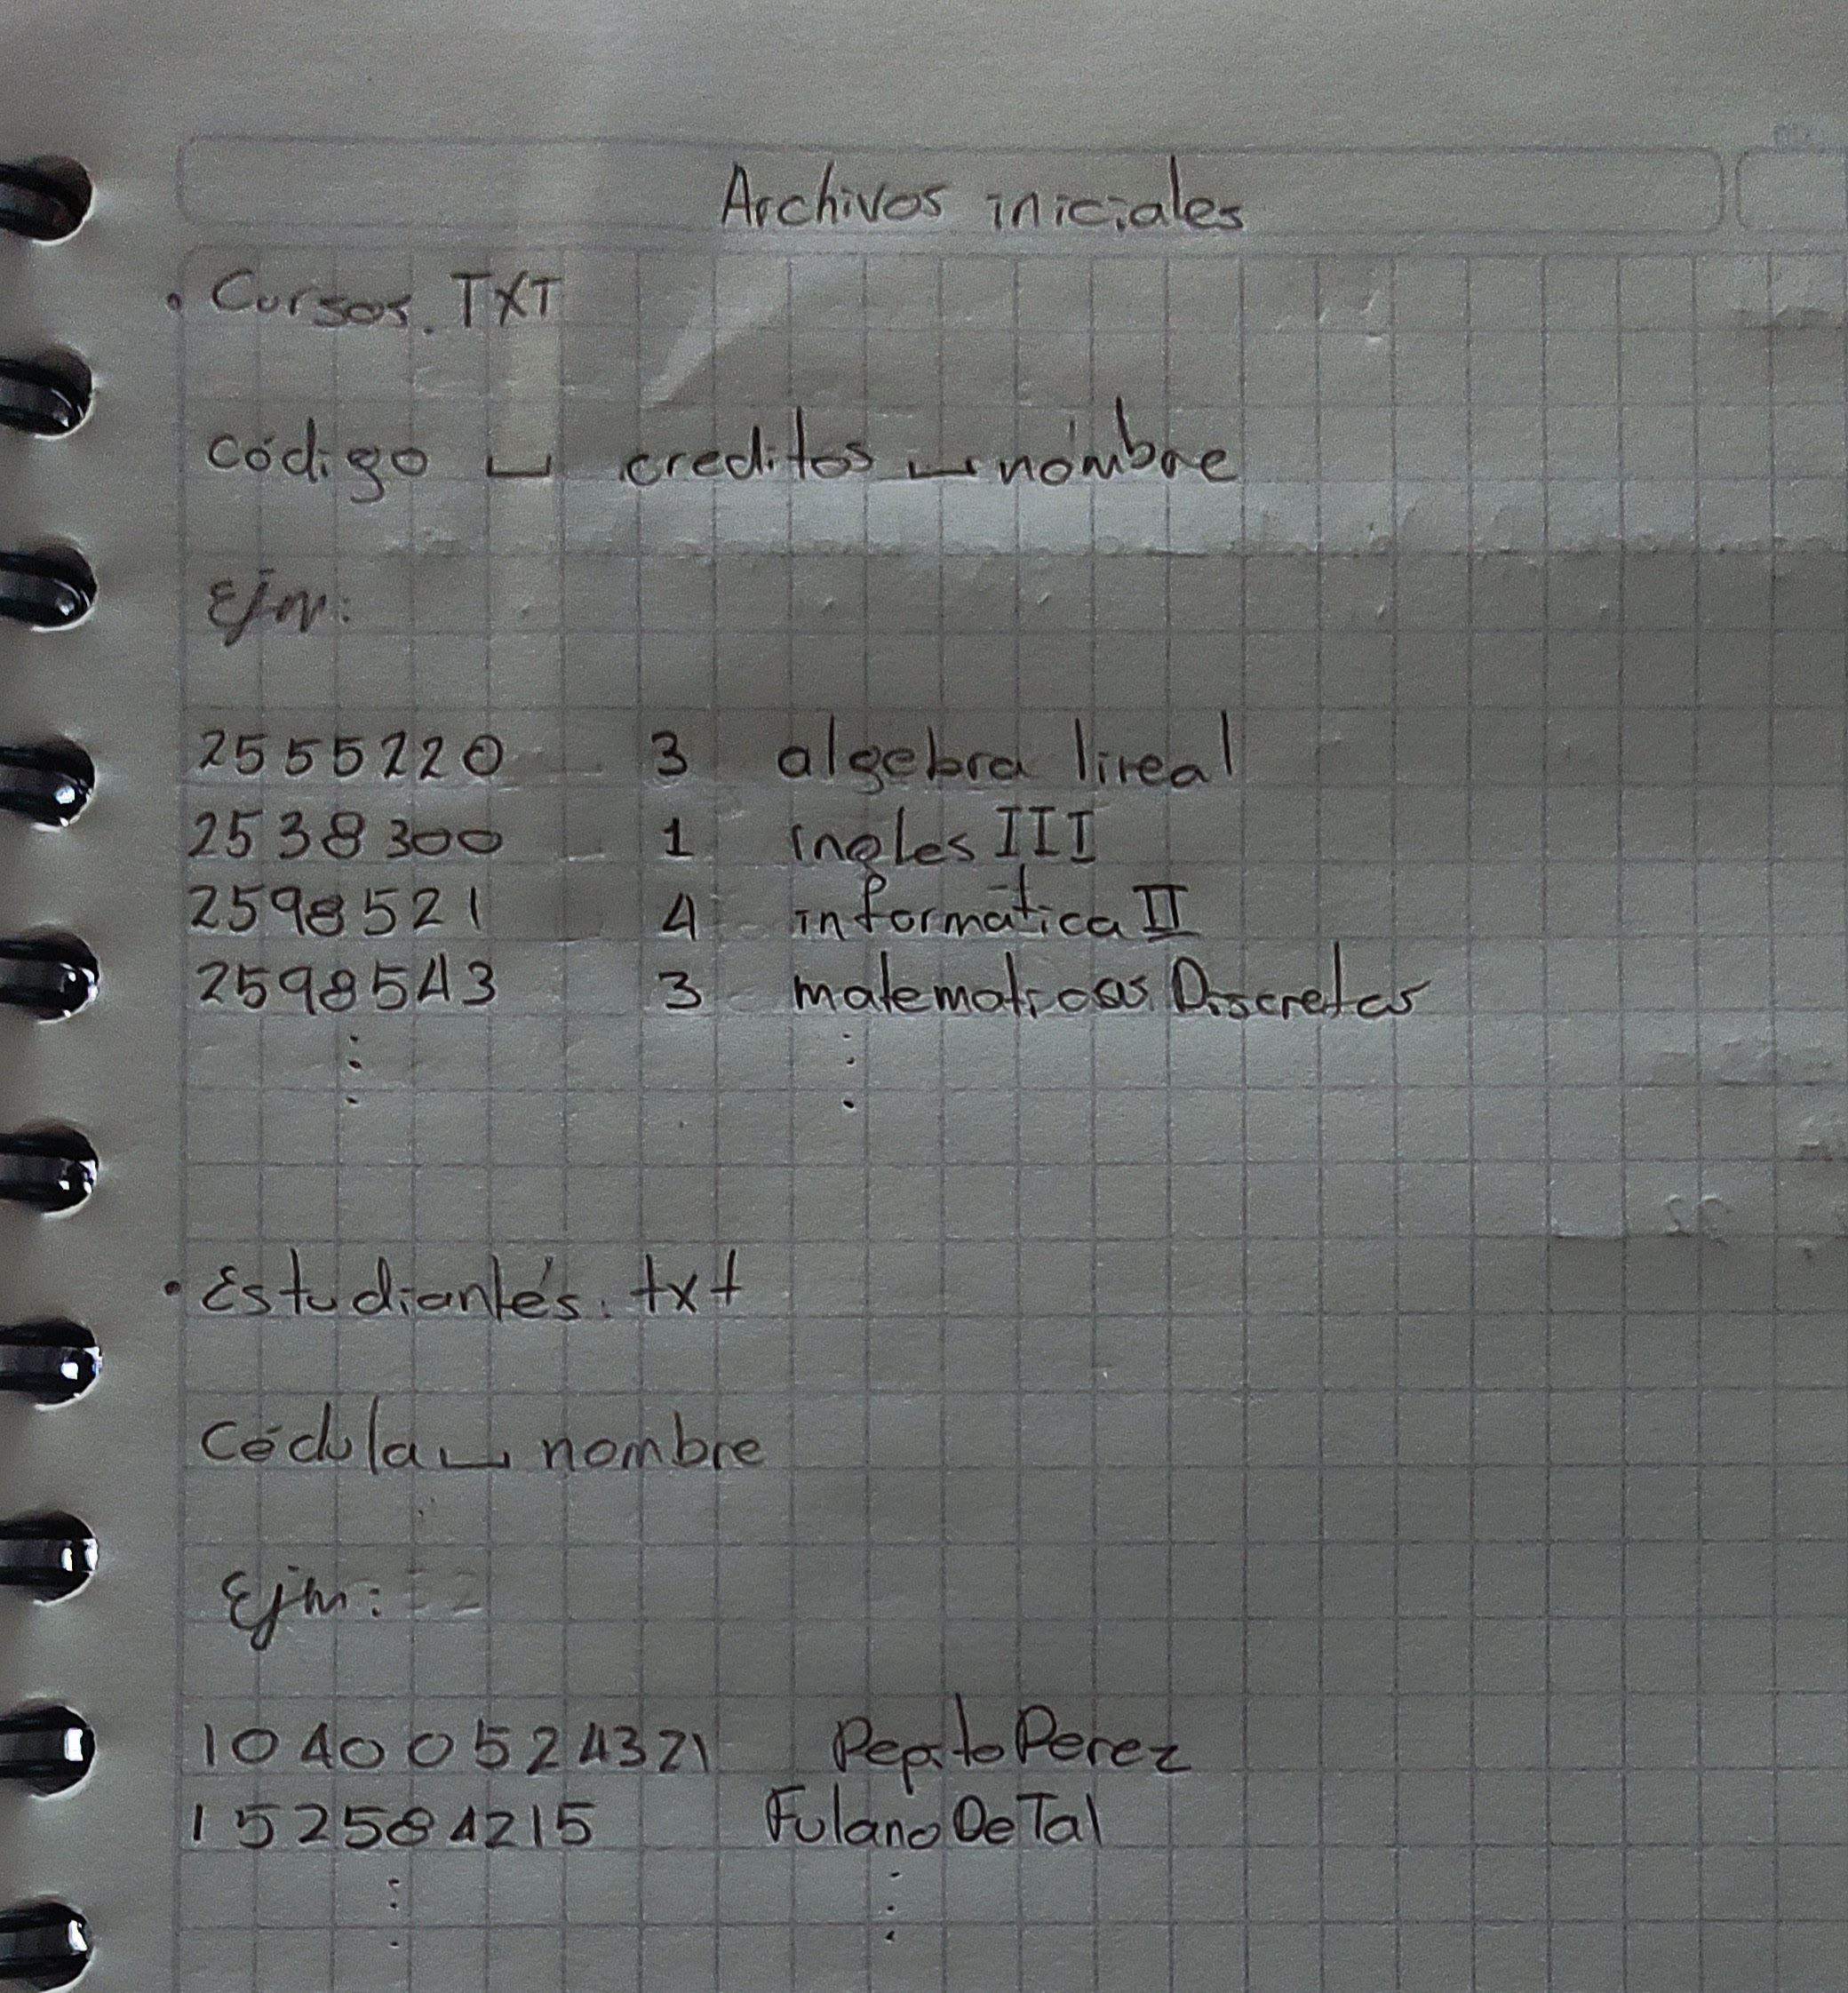 Archivos iniciales
• Cursos.TXT
código ⌴ creditos ⌴ nombre
Ejm:
2555220 3 algebra lineal
2538300 1 ingles III
2598521 4 informática II
2598543 3 matematicas Discretas
⋮ ⋮
• Estudiantes.txt
Cédula ⌴ nombre
Ejm:
10400524321 PepitoPerez
152584215 FulanoDeTal
⋮ ⋮